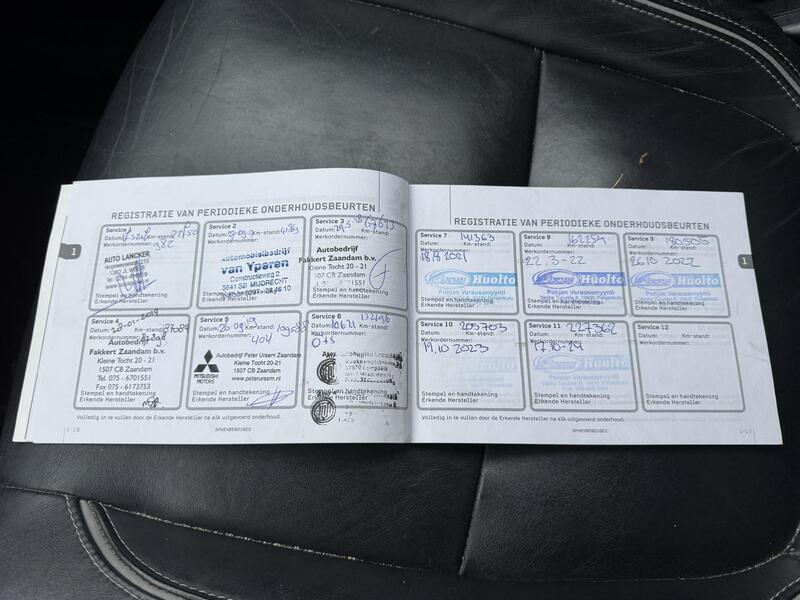 REGISTRATIE VAN PERIODIEKE ONDERHOUDSBEURTEN
1
Service 1
Datum: Km-stand:
Werkordernummer:
AUTO LANCKER
Stempel en handtekening
Erkende Hersteller
Service 2
Datum: Km-stand:
Werkordernummer:
Automobielbedrijf
van Yperen
Constructieweg 2
3641 SB MIJDRECHT
Erkende Hersteller
Service 3
Datum: Km-stand: 67633
Werkordernummer:
Autobedrijf
Fakkert Zaandam b.v.
Kleine Tocht 20 - 21
1507 CB Zaandam
Erkende Hersteller
Service 4
Datum: 28-01-2019 Km-stand: 87089
Werkordernummer:
Autobedrijf
Fakkert Zaandam b.v.
Kleine Tocht 20 - 21
1507 CB Zaandam
Tel. 075 - 6701551
Fax 075 - 6173753
Stempel en handtekening
Erkende Hersteller
Service 5
Datum: 26 09 19 Km-stand:
Werkordernummer: 404
MITSUBISHI
MOTORS
Autobedrijf Peter Ursem Zaandam
Kleine Tocht 20-21
1507 CB Zaandam
www.peterursem.nl
Stempel en handtekening
Erkende Hersteller
Service 6
Datum: Km-stand: 132496
Werkordernummer:
Stempel en handtekening
Erkende Hersteller
Volledig in te vullen door de Erkende Hersteller na elk uitgevoerd onderhoud.
1-16
SPHEVBE8018E2
REGISTRATIE VAN PERIODIEKE ONDERHOUDSBEURTEN
1
Service 7 141363
Datum: Km-stand:
Werkordernummer:
2021
Huolto
Pohjan Varaosamyynti
Stempel en handtekening
Erkende Hersteller
Service 8 162254
Datum: Km-stand:
Werkordernummer:
22.3-22
Huolto
Pohjan Varaosamyynti
Stempel en handtekening
Erkende Hersteller
Service 9 180505
Datum: Km-stand:
Werkordernummer:
26.10 2022
Huolto
Pohjan Varaosamyynti
Stempel en handtekening
Erkende Hersteller
Service 10 205703
Datum: Km-stand:
Werkordernummer:
19.10 2023
Huolto
Pohjan Varaosamyynti
Stempel en handtekening
Erkende Hersteller
Service 11 227362
Datum: Km-stand:
Werkordernummer:
17.10-24
Huolto
Stempel en handtekening
Erkende Hersteller
Service 12
Datum: Km-stand:
Werkordernummer:
Stempel en handtekening
Erkende Hersteller
Volledig in te vullen door de Erkende Hersteller na elk uitgevoerd onderhoud.
SPHEVBE8018E2
1-17